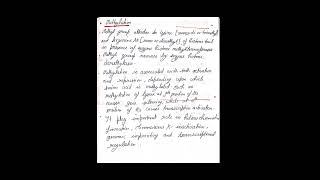 • Methylation
- Methyl group attaches to lysine [mono, di or trimethyl]
and arginine [mono or dimethyl] of histones tail
in presence of enzyme histone methyltransferases
- Methyl group removes by enzyme histone
demethylase.
- Methylation is associated with both activation
and repression, depending upon which
amino acid is methylated such as
methylation of lysine at 9th position of H3
causes gene silencing, while at 4th
position of H3 causes transcription activation.
- It play important role in heterochromatin
formation, chromosome X- inactivation,
genomic imprinting and transcriptional
regulation.